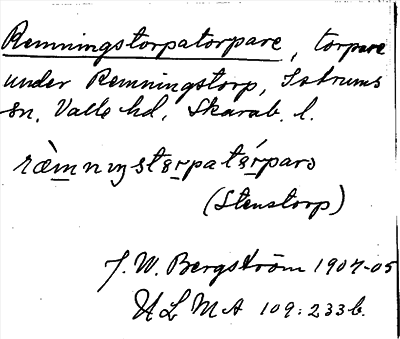 Remningstorpatorpare, torpare
under Remningstorp, Istrums
sn, Valle hd, Skarab. l.
ræ̀mnıŋstɵrpatɵ́rparə
(Stenstorp)
J. W. Bergström 1904-05
ULMA 109:233 b.